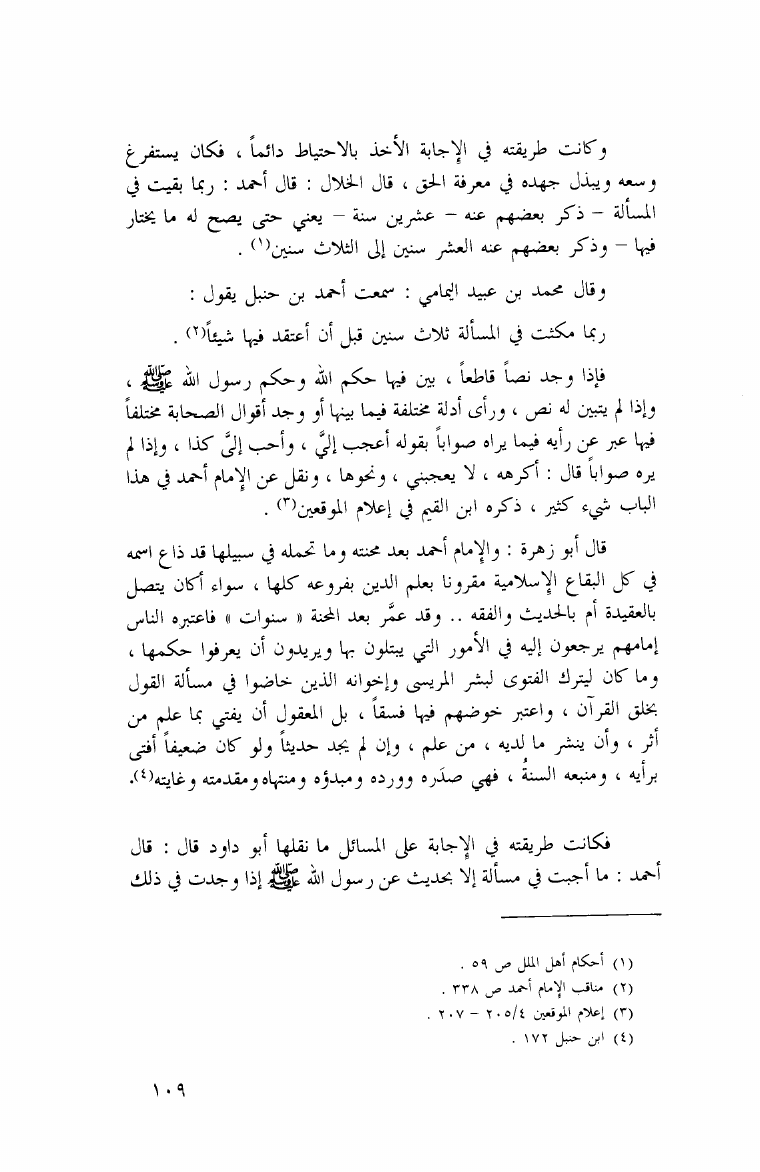 وكانت طريقته في الإجابة الأخذ بالاحتياط دائماً ، فكان يستفرغ
وسعه ويبذل جهده في معرفة الحق ، قال الخلال : قال أحمد : ربما بقيت في
المسألة – ذكر بعضهم عنه – عشرين سنة – يعني حتى يصح له ما يختار
فيها – وذكر بعضهم عنه العشر سنين إلى الثلاث سنين(١) .
وقال محمد بن عبيد اليمامي : سمعت أحمد بن حنبل يقول :
ربما مكثت في المسألة ثلاث سنين قبل أن أعتقد فيها شيئاً(٢) .
فإذا وجد نصاً قاطعاً ، بين فيها حكم الله وحكم رسول الله ﷺ ،
وإذا لم يتبين له نص ، ورأى أدلة مختلفة فيما بينها أو وجد أقوال الصحابة مختلفاً
فيها عبر عن رأيه فيما يراه صواباً بقوله أعجب إليَّ ، وأحب إليَّ كذا ، وإذا لم
يره صواباً قال : أكرهه ، لا يعجبني ، ونحوها ، ونقل عن الإمام أحمد في هذا
الباب شيء كثير ، ذكره ابن القيم في إعلام الموقعين(٣) .
قال أبو زهرة : والإمام أحمد بعد محنته وما تحمله في سبيلها قد ذاع اسمه
في كل البقاع الإسلامية مقرونا بعلم الدين بفروعه كلها ، سواء أكان يتصل
بالعقيدة أم بالحديث والفقه .. وقد عمَّر بعد المحنة « سنوات » فاعتبره الناس
إمامهم يرجعون إليه في الأمور التي يبتلون بها ويريدون أن يعرفوا حكمها ،
وما كان ليترك الفتوى لبشر المريسى وإخوانه الذين خاضوا في مسألة القول
بخلق القرآن ، واعتبر خوضهم فيها فسقاً ، بل المعقول أن يفتي بما علم من
أثر ، وأن ينشر ما لديه ، من علم ، وإن لم يجد حديثاً ولو كان ضعيفاً أفتى
برأيه ، ومنبعه السنةُ ، فهي صدَره وورده ومبدؤه ومنتهاه ومقدمته وغايته(٤).
فكانت طريقته في الإجابة على المسائل ما نقلها أبو داود قال : قال
أحمد : ما أجبت في مسألة إلا بحديث عن رسول الله ﷺ إذا وجدت في ذلك
(١) أحكام أهل الملل ص ٥٩ .
(٢) مناقب الإمام أحمد ص ٣٣٨ .
(٣) إعلام الموقعين ٢٠٥/٤ – ٢٠٧ .
(٤) ابن حنبل ١٧٢ .
١٠٩